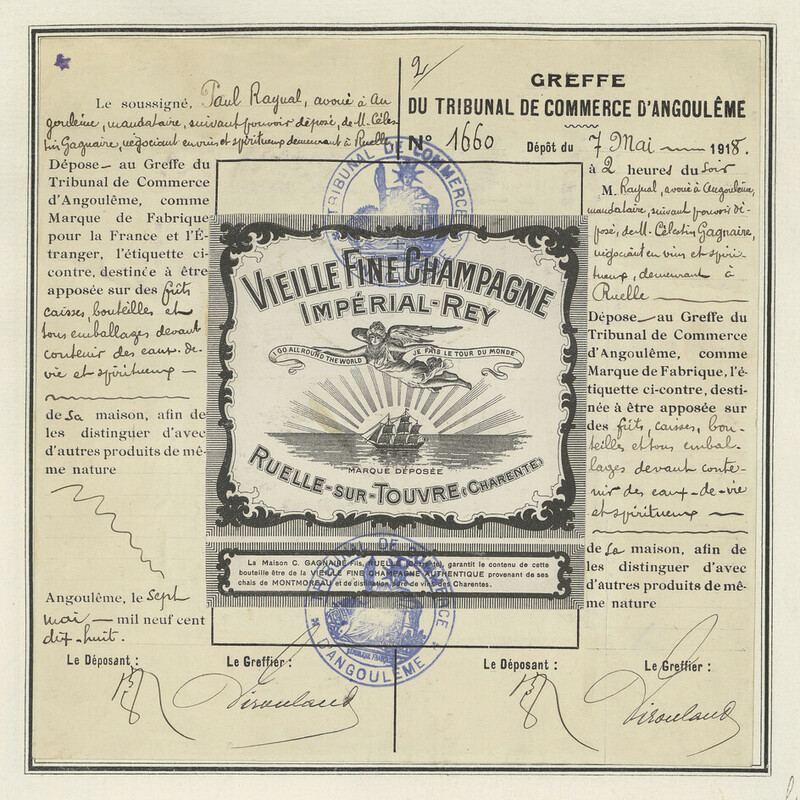 Le soussigné, Paul Raynal, avoué à An
goulême, mandataire, suivant pouvoir déposé, de M. Céles
tin Gagnaire, négociant en vins et spiritueux demeurant à Ruelle
Dépose au Greffe du
Tribunal de Commerce
d'Angoulême, comme
Marque de Fabrique
pour la France et l'É-
tranger, l'étiquette ci-
contre, destinée à être
apposée sur des fûts
caisses, bouteilles et
tous emballages devant
contenir des eaux-de-
vie et spiritueux
de sa maison, afin de
les distinguer d'avec
d'autres produits de mê-
me nature
Angoulême, le Sept
mai mil neuf cent
dix-huit.
Le Déposant :
Le Greffier :
TRIBUNAL DE COMMERCE
VIEILLE FINE CHAMPAGNE
IMPÉRIAL-REY
I GO ALL ROUND THE WORLD
JE FAIS LE TOUR DU MONDE
MARQUE DÉPOSÉE
RUELLE-SUR-TOUVRE (CHARENTE)
La Maison C. GAGNAIRE Fils, RUELLE (Charente), garantit le contenu de cette
bouteille être de la VIEILLE FINE CHAMPAGNE AUTHENTIQUE provenant de ses
chais de MONTMOREAU et de distillation de vins des Charentes.
TRIBUNAL DE COMMERCE
D'ANGOULÊME
2
GREFFE
DU TRIBUNAL DE COMMERCE D'ANGOULÊME
N° 1660 Dépôt du 7 Mai 1918.
à 2 heures du Soir
M. Raynal, avoué à Angoulême,
mandataire, suivant pouvoir dé-
posé, de M. Célestin Gagnaire,
négociant en vins et spiri-
tueux, demeurant à
Ruelle
Dépose au Greffe du
Tribunal de Commerce
d'Angoulême, comme
Marque de Fabrique, l'é-
tiquette ci-contre, desti-
née à être apposée sur
des fûts, caisses, bou-
teilles et tous embal-
lages devant conte-
nir des eaux-de-vie
et spiritueux
de sa maison, afin de
les distinguer d'avec
d'autres produits de mê-
me nature
Le Déposant :
Le Greffier :